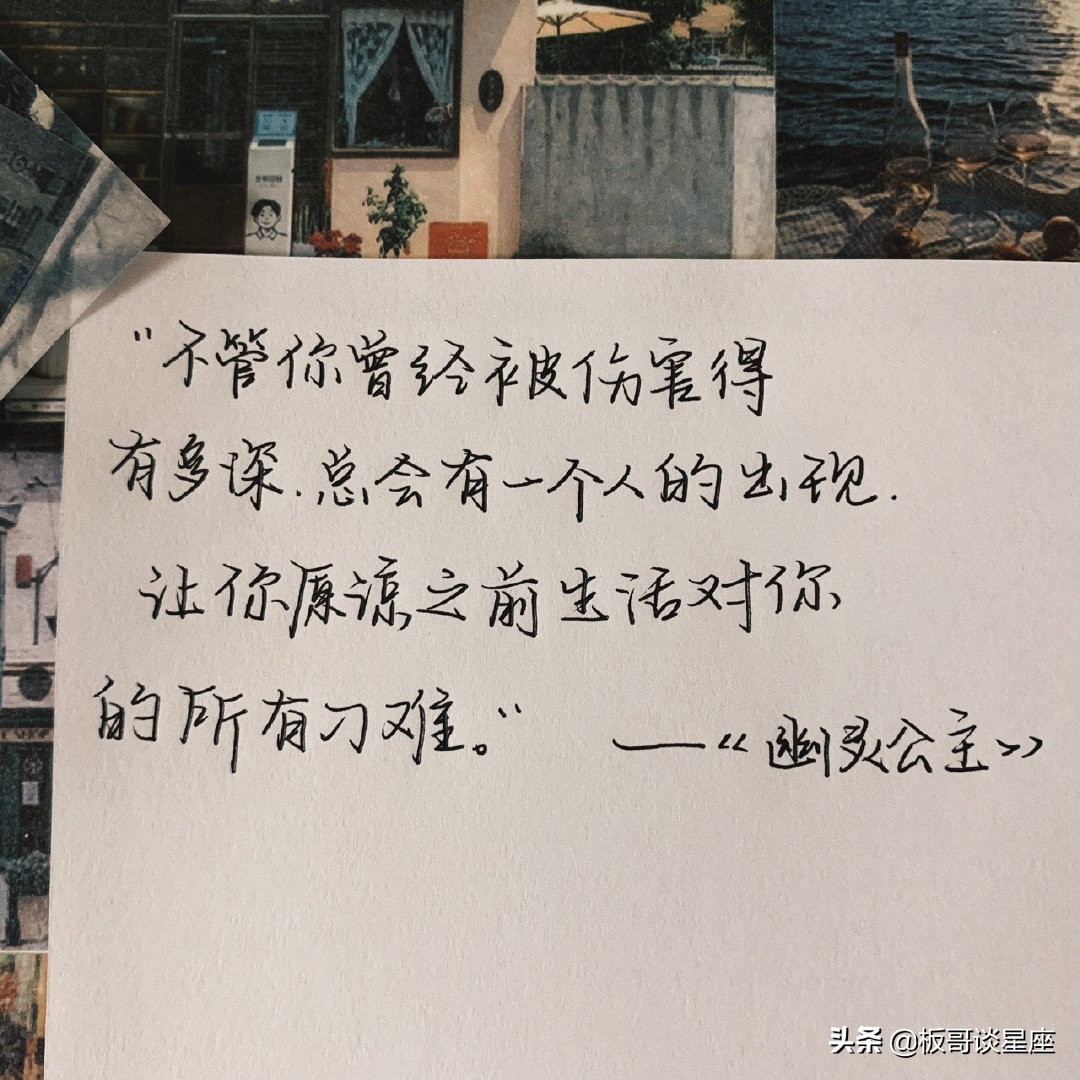 “不管你曾经被伤害得
有多深.总会有一个人的出现.
让你原谅之前生活对你
的所有刁难。“ ——《幽灵公主》
头条 @板哥谈星座